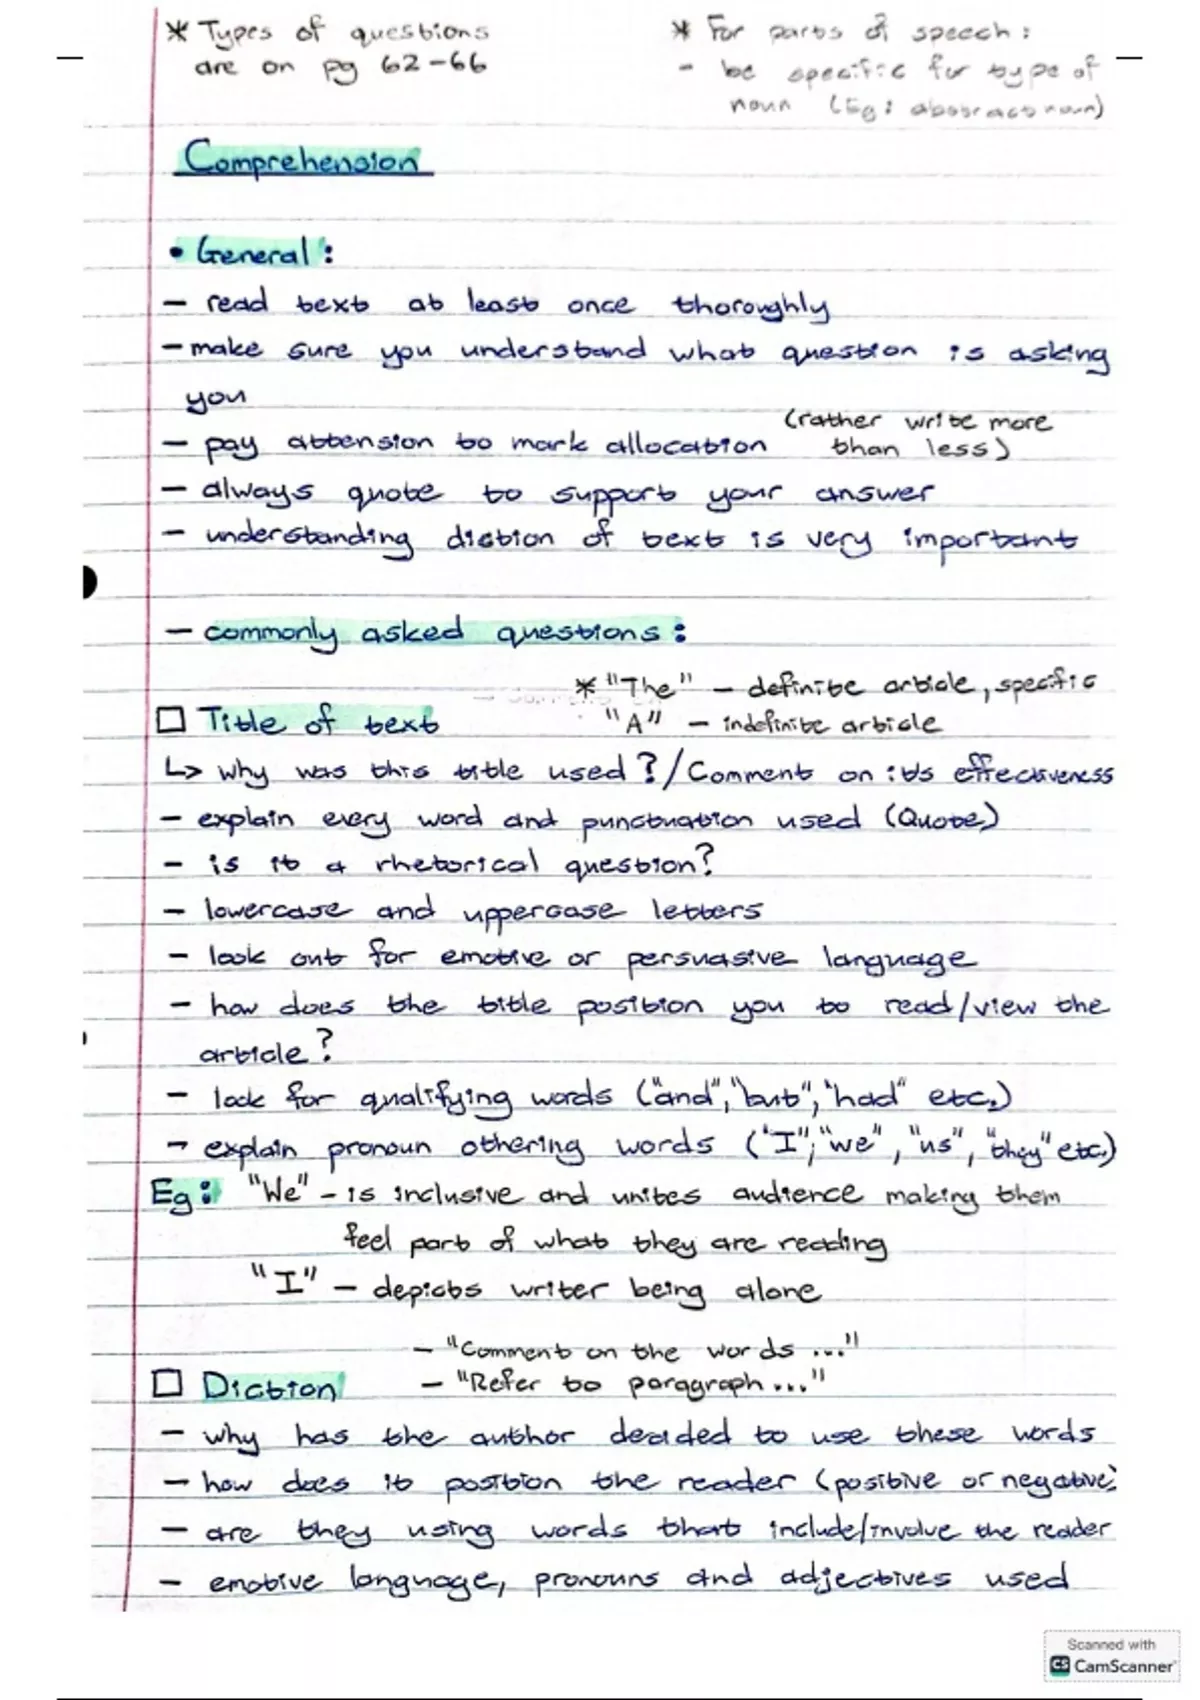 * Types of questions
are on pg 62-66
* For parts of speech:
- be specific for type of
noun (Eg: abstract noun)
Comprehension
• General:
- read text at least once thoroughly
- make sure you understand what question is asking
you
- pay attension to mark allocation (rather write more
than less)
- always quote to support your answer
- understanding diction of text is very important
- commonly asked questions:
* "The" - definite article, specific
"A" - indefinite article
□ Title of text
↳ why was this title used?/Comment on its effectiveness
- explain every word and punctuation used (Quote)
- is it a rhetorical question?
- lowercase and uppercase letters
- look out for emotive or persuasive language
- how does the title position you to read/view the
article?
- look for qualifying words ("and", "but", "had" etc.)
- explain pronoun othering words ("I", "we", "us", "they" etc.)
Eg: "We" - is inclusive and unites audience making them
feel part of what they are reading
"I" - depicts writer being alone
- "Comment on the words ..."
□ Diction - "Refer to paragraph ..."
- why has the author decided to use these words
- how does it position the reader (positive or negative)
- are they using words that include/involve the reader
- emotive language, pronouns and adjectives used
Scanned with
CS CamScanner